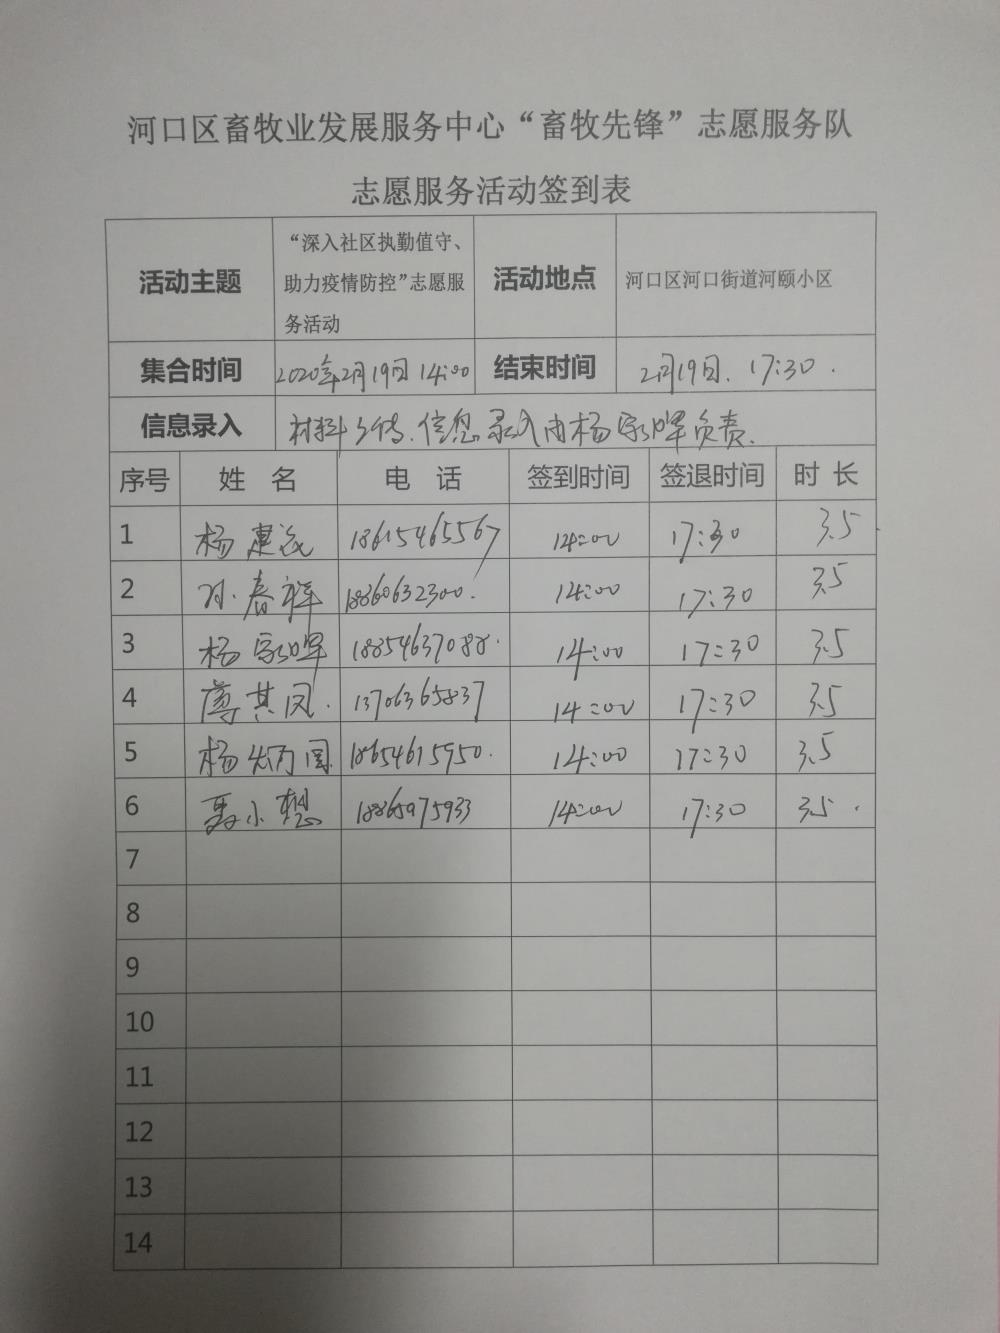 河口区畜牧业发展服务中心“畜牧先锋”志愿服务队
志愿服务活动签到表
活动主题
“深入社区执勤值守、
助力疫情防控”志愿服
务活动
活动地点
河口区河口街道河颐小区
集合时间 2020年2月19日 14:00 结束时间 2月19日. 17:30.
信息录入 材料上传.信息录入由杨家晖负责.
序号 姓 名 电 话 签到时间 签退时间 时 长
1 杨建 18615465567 14:00 17:30 3.5
2 孙春祥 18360632300. 14:00 17:30 3.5
3 杨家晖 18854637088. 14:00 17:30 3.5
4 其凤. 13706365837 14:00 17:30 3.5
5 杨炳国 18654615950. 14:00 17:30 3.5
6 聂小想 18865975933 14:00 17:30 3.5.
7
8
9
10
11
12
13
14